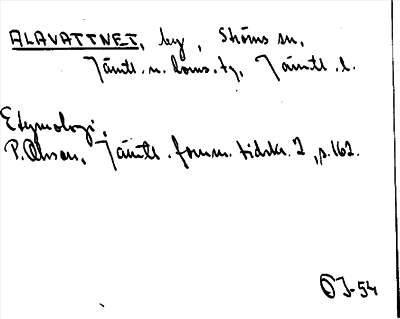 ALAVATTNET, by, Ströms sn,
Jämtl. n. doms. tg, Jämtl. l.
Etymologi.
P. Olsson, Jämtl. fornm. tidskr. 2, p. 162.
OJ-54